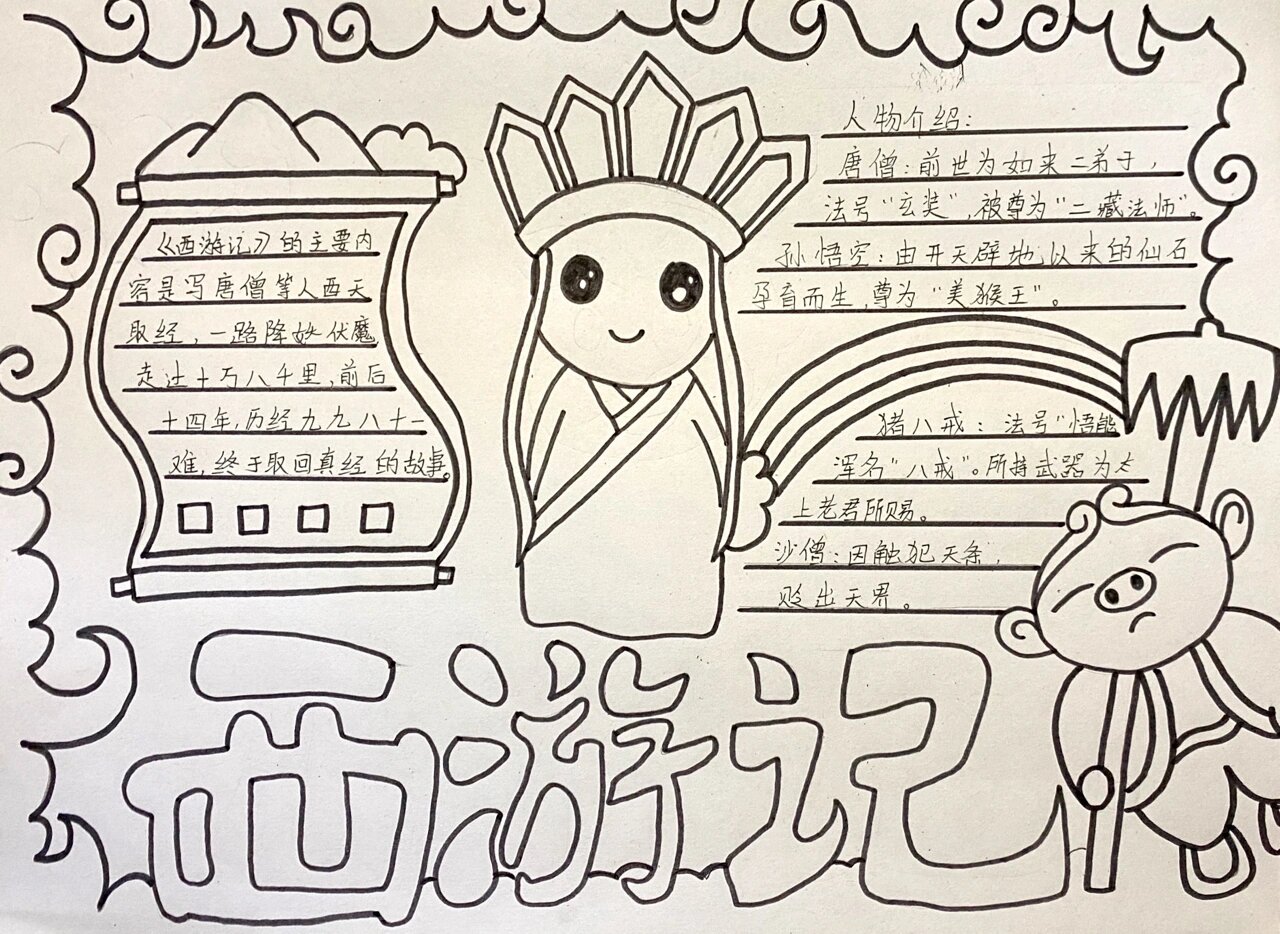 《西游记》的主要内
容是写唐僧等人西天
取经，一路降妖伏魔
走过十万八千里，前后
十四年，历经九九八十一
难，终于取回真经的故事。
人物介绍：
唐僧：前世为如来二弟子，
法号“玄奘”，被尊为“二藏法师”。
孙悟空：由开天辟地以来的仙石
孕育而生，尊为“美猴王”。
猪八戒：法号“悟能
浑名“八戒”。所持武器为太
上老君所赐。
沙僧：因触犯天条，
贬出天界。
西游记